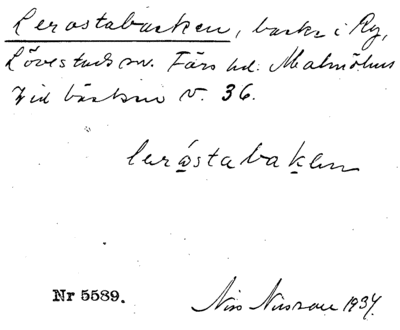 Lerostabacken, backe i Ry,
Lövestads sn. Färs hd. Malmöhus
Vid bäcken v. 36.
leråstabaken
Nr 5589.
Nils Nilsson 1934.